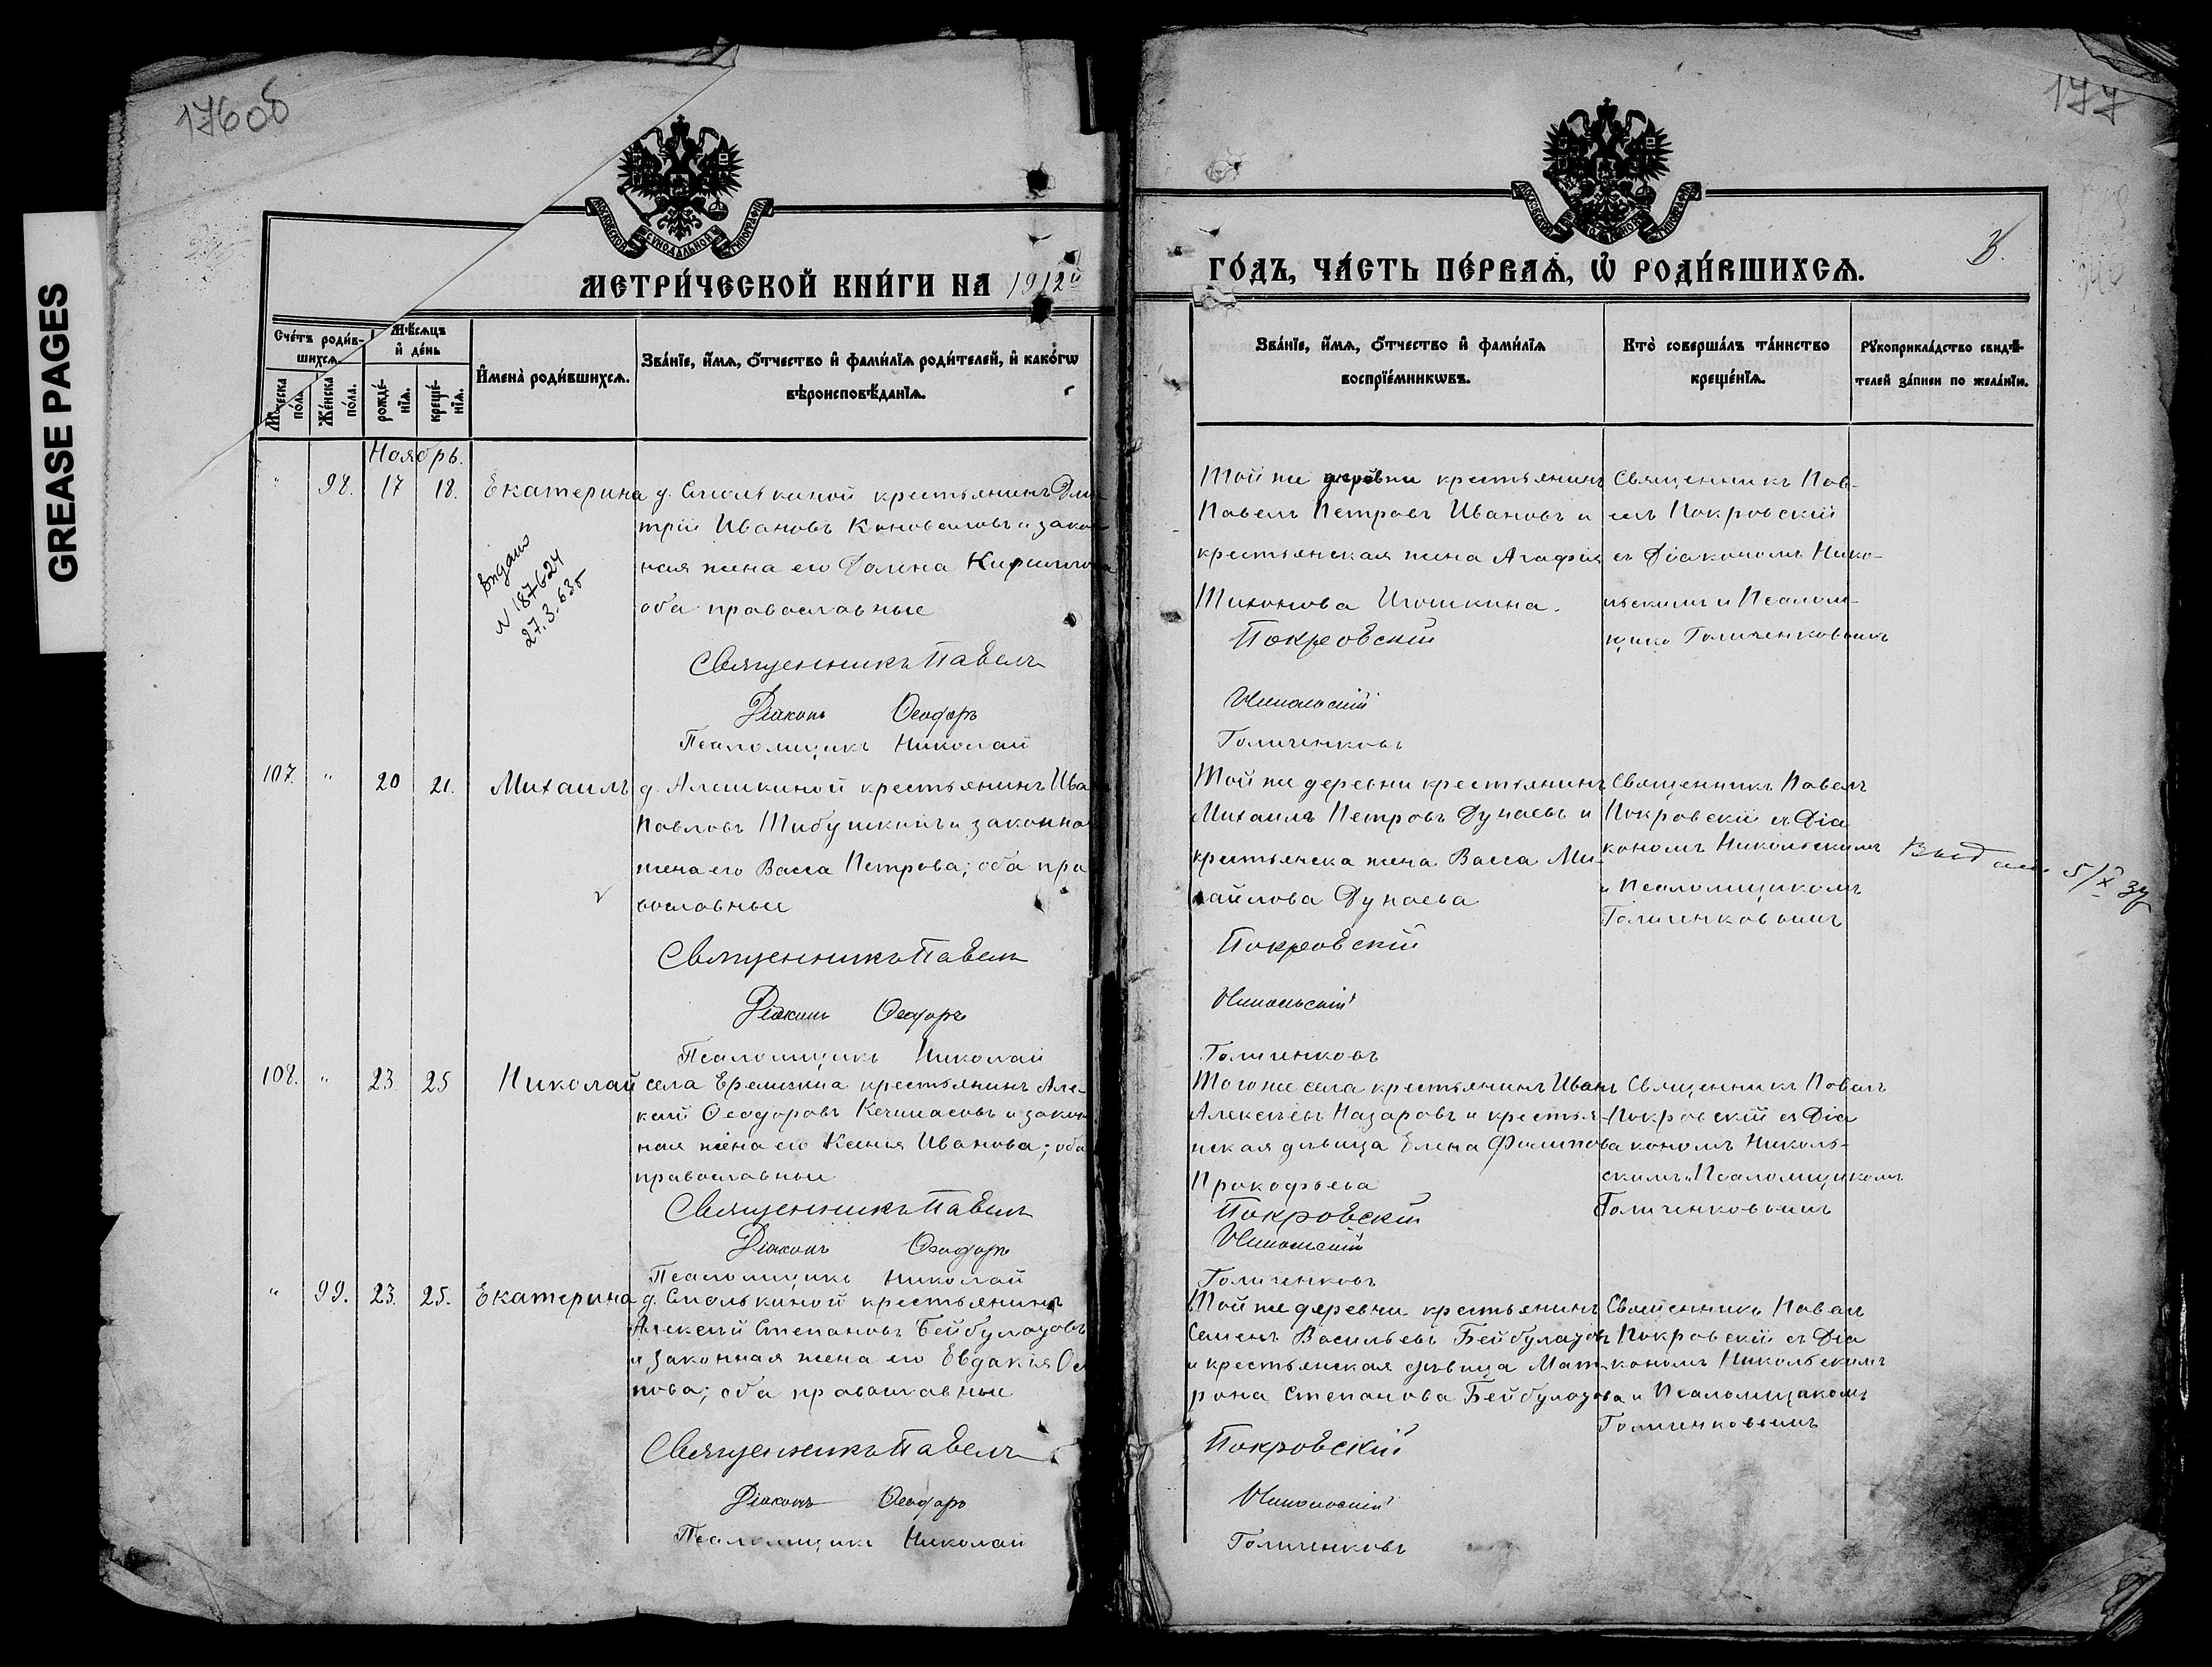 176об
177
GREASE PAGES
МОСКОВСКОЙ СѴНОДАЛЬНОЙ ТИПОГРАФІИ
МЕТРИ́ЧЕСКОЙ КНИ́ГИ НА 1912й
ГО́ДЪ, ЧА́СТЬ ПЕ́РВАѦ, Ѡ҆ РОДИ́ВШИХСѦ.
Сче́тъ роди́в-
шихсѧ.
Мѣ́сѧцъ
и҆ де́нь
Мꙋ́жеска
по́ла.
Же́нска
по́ла.
рожде́-
нїѧ.
креще́-
нїѧ.
И҆мена̀ роди́вшихсѧ.
Зва́нїе, и҆́мѧ, ѻ҆́тчество и҆ фами́лїѧ роди́телей, и҆ како́гѡ
вѣроисповѣ́данїѧ.
Зва́нїе, и҆́мѧ, ѻ҆́тчество и҆ фами́лїѧ
воспрїе́мникѡвъ.
Кто̀ соверша́лъ та́инство
креще́нїѧ.
Рꙋкоприкла́дство свидѣ́-
телей за́писи по жела́нїю.
Ноябрь.
" 98. 17 18. Екатерина
д. Смолькиной крестьянинъ Дми-
трій Ивановъ Коноваловъ и закон-
ная жена его Домна Кириллова
оба православные
Священникъ Павелъ
Діаконъ Ѳеодоръ
Псаломщикъ Николай
выдано
N 187624
27.3.63г
Той же деревни крестьянинъ
Павелъ Петровъ Ивановъ и
крестьянская жена Агафія
Тихонова Игошкина.
Покровскій
Никольскій
Голиченковъ
Священникъ Пав-
елъ Покровскій
съ Діакономъ Нико-
льскимъ и Псалом-
щико Голиченковымъ
107. " 20 21. Михаилъ
д. Алешкиной крестьянинъ Ива
Павловъ Тибушкинъ и законна
жена его Васса Петрова; оба пра
вославные
Священникъ Павелъ
Діаконъ Ѳеодоръ
Псаломщикъ Николай
Той же деревни крестьянинъ
Михаилъ Петровъ Дунаевъ и
крестьянска жена Васса Ми-
хайлова Дунаева
Покровскій
Никольскій
Голиченковъ
Священникъ Павелъ
Покровскій съ Діа
кономъ Никольскимъ
и Псаломщикомъ
Голиченковымъ
5/X 37
108. " 23 25 Николай
села Еремкина крестьянинъ Але-
ксѣй Ѳеодоровъ Кечинасовъ и закон
ная жена его Ксенія Иванова; оба
православные
Священникъ Павелъ
Діаконъ Ѳеодоръ
Псаломщикъ Николай
Того же села крестьянинъ Иванъ
Алексѣевъ Назаровъ и крестья-
нская дѣвица Елена Филипова
Прокофьева
Покровскій
Никольскій
Голиченковъ
Священникъ Павелъ
Покровскій съ Діа
кономъ Николь-
скимъ и Псаломщикомъ
Голиченковымъ
" 99. 23. 25. Екатерина
д. Смолькиной крестьянинъ
Алексѣй Степановъ Бейбулатовъ
и законная жена его Евдакія Ос
пова; оба православные
Священникъ Павелъ
Діаконъ Ѳеодоръ
Псаломщикъ Николай
Той же деревни крестьянинъ
Семенъ Васильевъ Бейбулатовъ
и крестьянская дѣвица Мат-
рона Степанова Бейбулатова
Покровскій
Никольскій
Голиченковъ
Священникъ Павелъ
Покровскій съ Діа
кономъ Никольскимъ
и Псаломщикомъ
Голиченковымъ